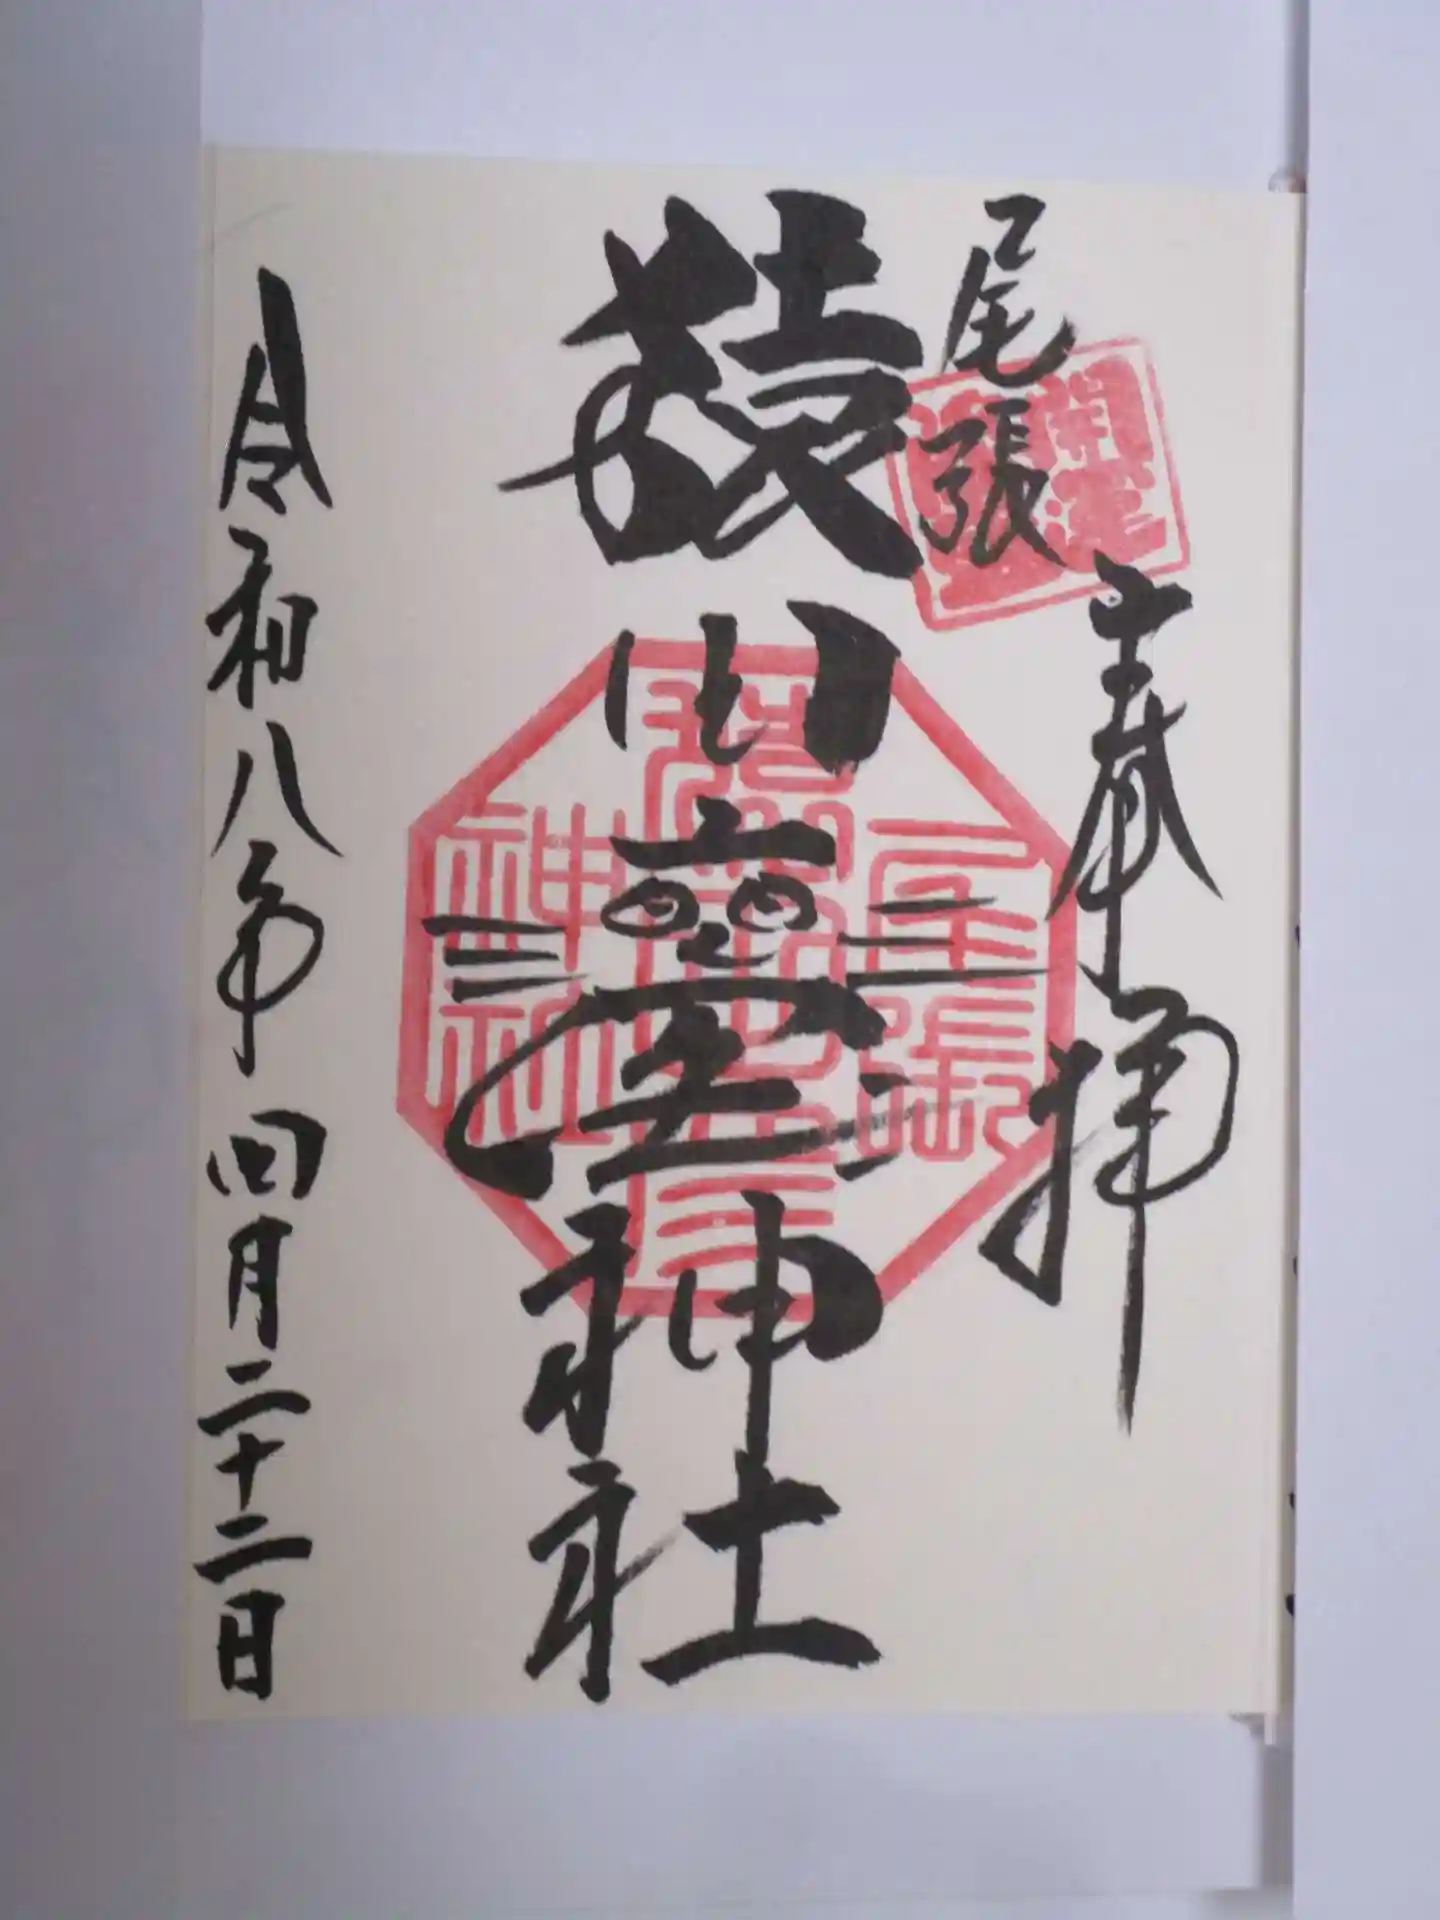 奉拝
尾張
猿田彦神社
令和八年四月二十二日
尾張
猿田彦
神社
開運